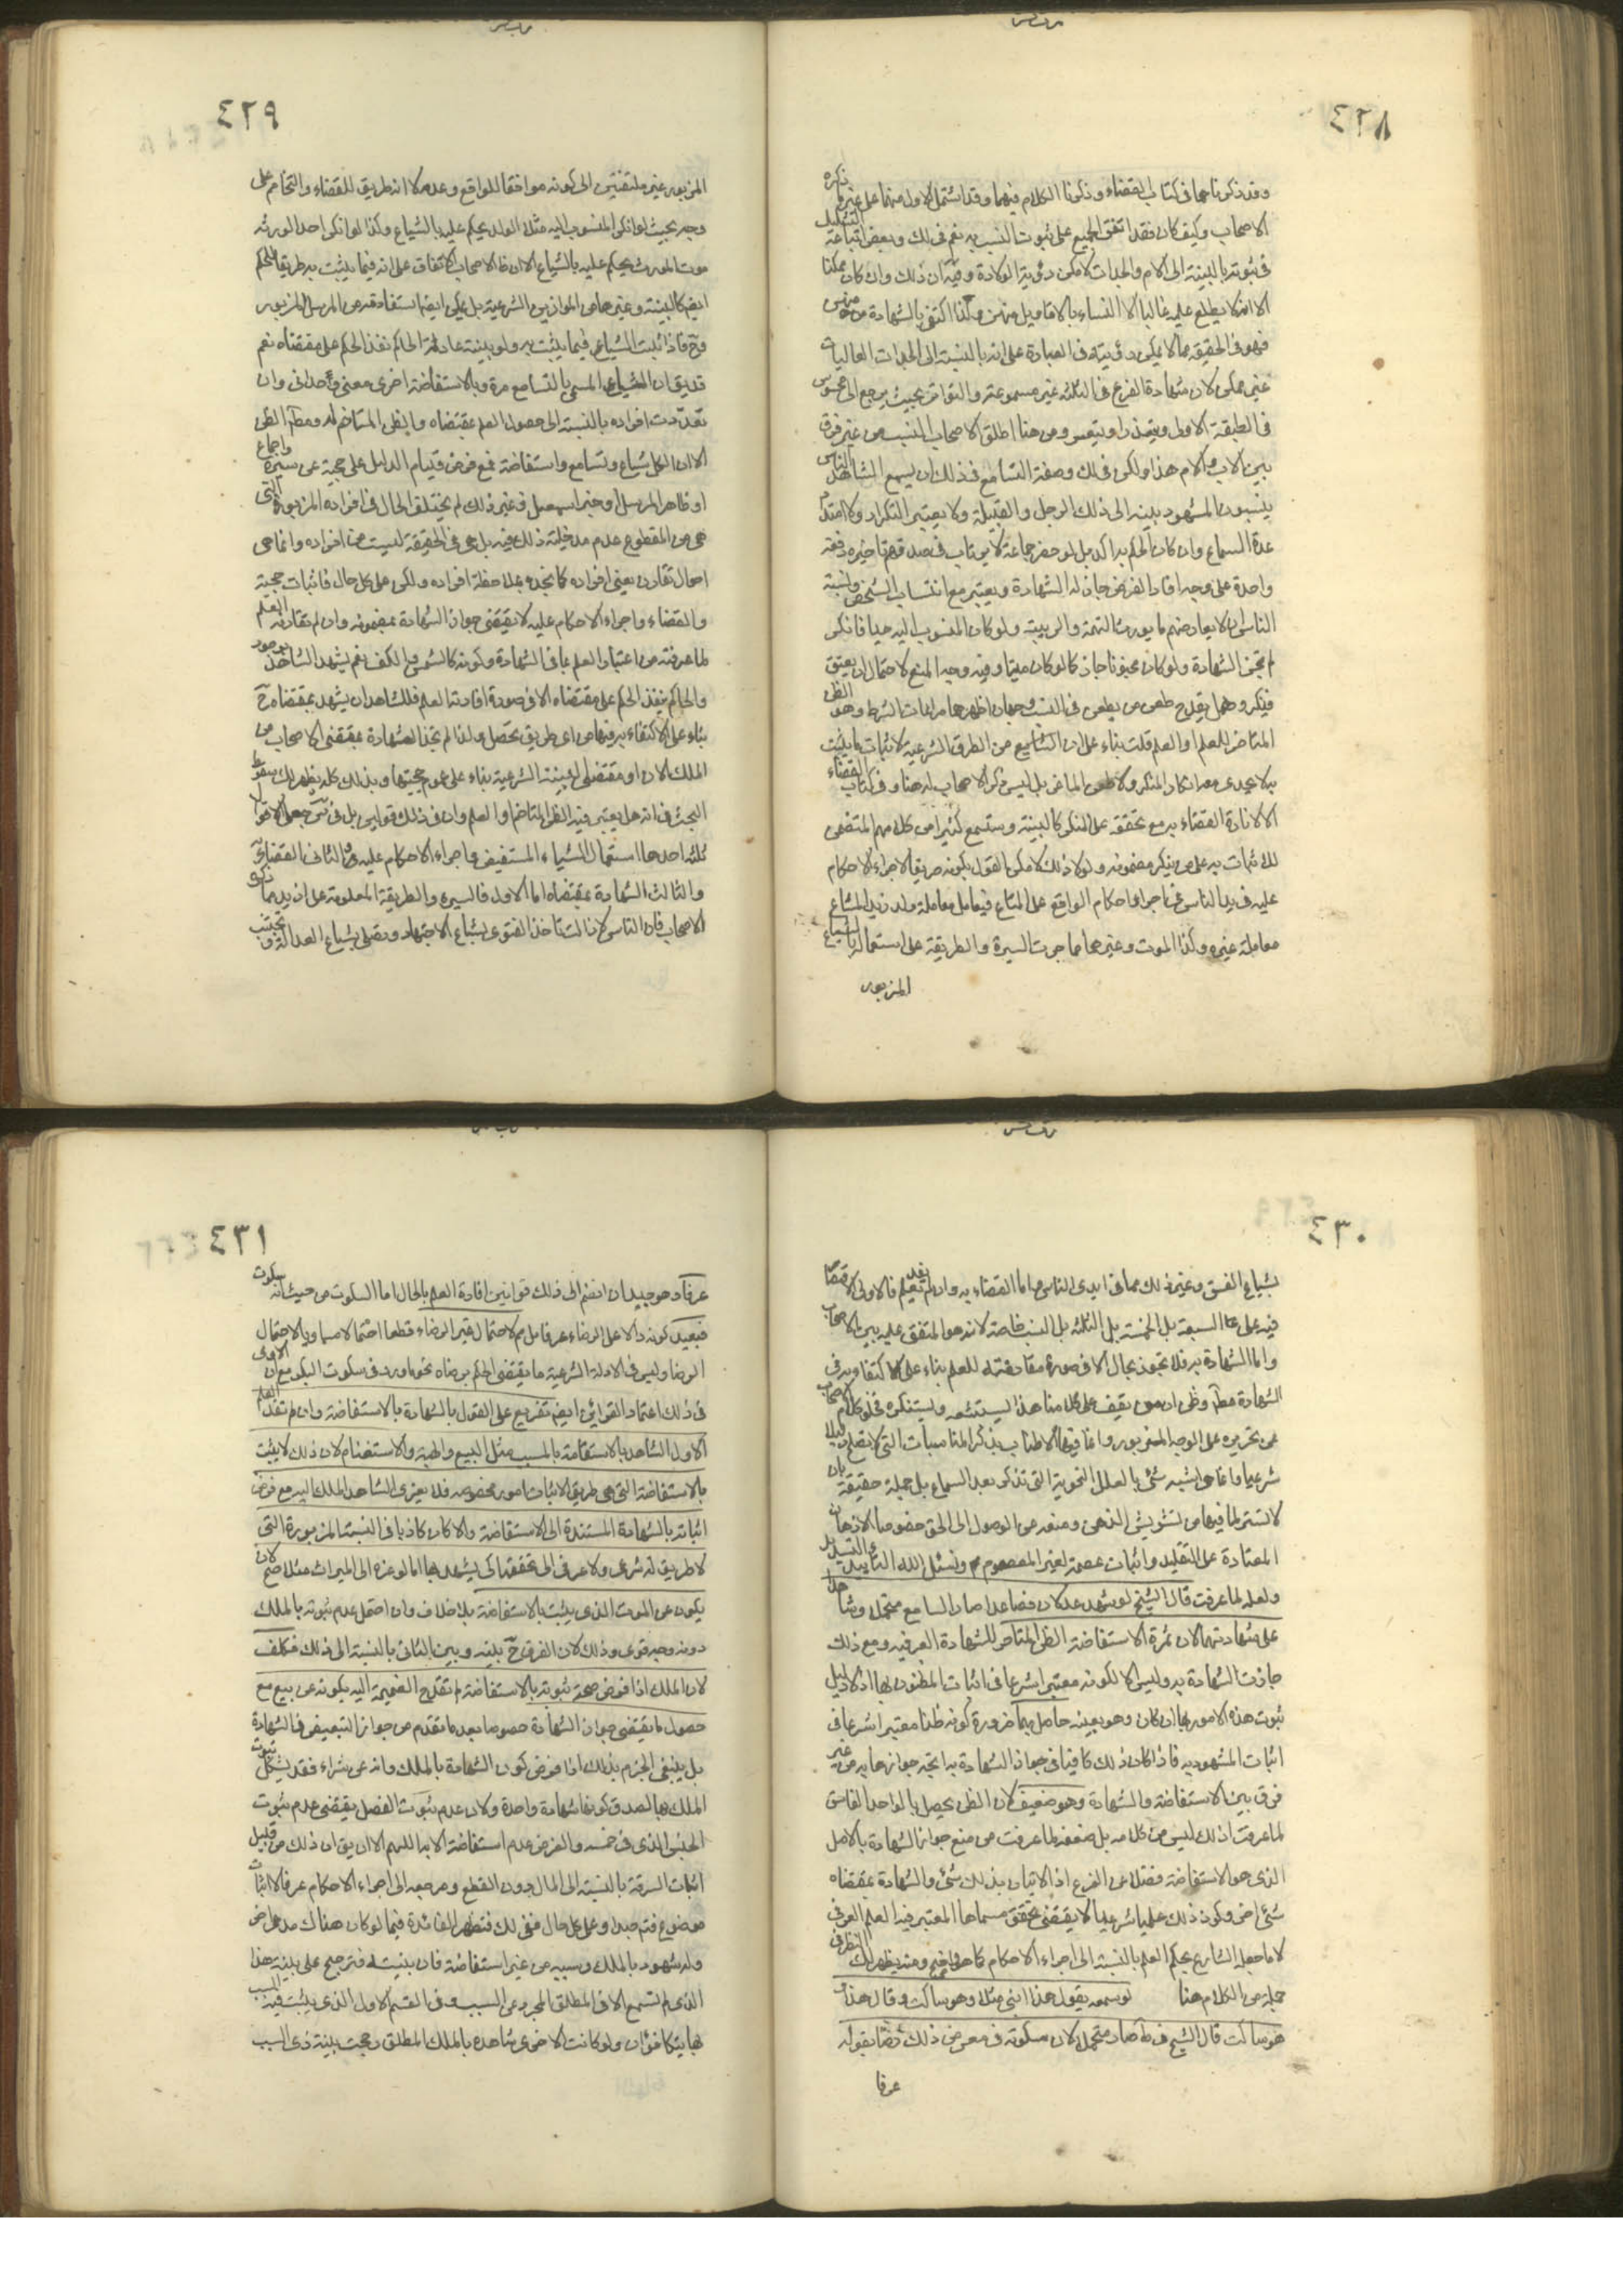 ٤٢٨
وقد ذكرناهما في كتاب القضاء وذكرنا الكلام فيهما وقد اشتمل الاول منهما على غير ذكره
الاصحاب وكيف كان فقد اتفق الجميع على ثبوت النسب به نعم في لك وبعض اتباعه التشكيك
في ثبوته بالنسبة الى الام والجدات لامكن رؤية الولادة وفيه ان ذلك وان كان ممكنا
الا انه لا يطلع عليه غالبا الا النساء بالاقاويل منهن ولذا اكتفى بالشهادة منهن
فهو في الحقيقة مما لا يمكن رؤيته في العبادة على انه بالنسبة الى الجدات العاليات
غير ممكن لان شهادة الفرع في الثلثة غير مسموعة والتواتر بحيث يرجع الى محسوس
في الطبقة الاولى ويتعذر او يتعسر ومن هنا اطلق الاصحاب النسب من غير فرق
بين الاب والام هذا ولكن في لك وصفة التسامع في ذلك ان يسمع الشاهد الناس
ينسبون المشهود بينه الى ذلك الرجل والقبيلة ولا يعتبر التكرار ولا امتداد
عدة السماع وان كان الحكم به اكد بل لو حضر جماعة لا يرتاب في صدقهم فاخبروه دفعة
واحدة على وجه افاد الغرض جاز له الشهادة ويعتبر مع انتساب الشخص ونسبة
الناس ان لا يعارضهم ما يورث التهمة والريبة ولو كان المنسوب اليه حيا فانكر
لم تجز الشهادة ولو كان مجنونا جاز كما لو كان ميتا وفيه وجه المنع لاحتمال ان يفيق
فينكر وهل يقدح طعن من يطعن في النسب وجهان اظهرهما مراعات الشرط وهو الظن
المتاخم للعلم او العلم قلت بناء على ان التسامع من الطرق الشرعية لاثبات ما يثبت
به لا يجدي معه انكار المنكر ولا طعن الطاعن بل ليس ذكر الاصحاب له هنا وفي كتاب القضاء
الا لارادة القضاء به مع تحققه على المنكر كالبينة وستسمع كثيرا من كلامهم المتضمن
للاثبات به على من ينكر مضمونه ولولا ذلك لامكن القول بكونه طريقا لاجراء الاحكام
عليه في يد الناس نحو اجراء احكام الواقع على المشاع فيعامل معاملة ولد زيد المشاع
معاملة غيره وكذا الموت وغيرهما مما جرت السيرة والطريقة على استعمال الشياع
المزبور
٤٢٩
المزبور غير ملتفتين الى كونه موافقا للواقع وعدمه لا انه طريق للقضاء والتخاصم على
وجه بحيث لو انكر المنسوب اليه مثلا الولد يحكم عليه بالشياع وكذا لو انكر احد الورثة
موت المورث يحكم عليه بالشياع الا ان ظاهر الاصحاب الاتفاق على انه فيما يثبت به طريق للحكم
ايضا كالبينة وغيرهما من الموازين الشرعية بل يمكن ايضا استفادته من المرسل المزبور
وح فاذا ثبت الشياع فيما يثبت به ولو ببينة عادلة الحاكم نفذ الحكم على مقتضاه نعم
قد يقال ان الشياع المسمى بالتسامع مرة وبالاستفاضة اخرى معنى واحد وان
تعددت افراده بالنسبة الى حصول العلم بمقتضاه والظن المتاخم له ومطلق الظن
الا ان الكل شياع وتسامع واستفاضة فمع فرض قيام الدليل على حجية من سيرة واجماع
او ظاهر المرسل وخبر اسمعيل وغير ذلك لم يختلف الحال في افراده المزبورة التي
هي من المقطوع عدم مدخلية ذلك فيه بل هي في الحقيقة ليست من افراده وانما هي
احوال تقارن بعض افراده كما نجده بملاحظة افراده ولكن على كل حال فاثبات حجية
والقضاء واجراء الاحكام عليه لا يقتضي جواز الشهادة بمضمونه وان لم تقارنه العلم
لما عرفته من اعتبار العلم بما في الشهادة وكونه كالشمس والكف نعم يشهد الشاهد بوجود
والحاكم ينفذ الحكم على مقتضاه الا في صورة افادته العلم فللشاهد ان يشهد بمقتضاه ح
بناء على الاكتفاء به فيها من اي طريق تحصل ولذا لم تجز الشهادة بمقتضى الاصحاب من
الملك الان او مقتضى البينة الشرعية بناء على عموم حجيتها وبذلك كله يظهر لك سقوط
البحث في انه هل يعتبر فيه الظن المتاخم او العلم وان في ذلك قولين بل في س جعل الاقوال
ثلثة احدها استعمال الشياع المستفيض واجراء الاحكام عليه والثاني القضاء به
والثالث الشهادة بمقتضاه اما الاول فالسيرة والطريقة المعلومة على ازيد مما ذكره
الاصحاب فان الناس لا زالت تاخذ الفتوى بشياع الاجتهاد وتصلي بشياع العدالة وتجتنب
٤٣٠
بشياع الفسق وغير ذلك مما في ايدي الناس واما القضاء به وان لم يفد العلم فالاولى الاقتصار
فيه على السبعة بل الخمسة بل الثلثة بل النسب خاصة لانه هو المتفق عليه بين الاصحاب
واما الشهادة به فلا تجوز بحال الا في صورة مقارنته للعلم بناء على الاكتفاء به في
الشهادة مطلقا وظني ان من يقف على كلامنا هذا ليستشعره ويستنكره لخلو كلام الاصحاب
عن تحريره على الوجه المزبور وانما فيها الاطناب بذكر المناسبات التي لا تصلح دليلا
شرعيا وانما هي اشبه شئ بالعلل النحوية التي تذكر بعد السماع بل جملة حقيقة بان
لا تستر لما فيها من تشويش الذهن ومنعه عن الوصول الى الحق خصوصا الاذهان
المعتادة على التقليد واثبات عصمة لغير المعصوم ونسئل الله التاييد والتسديد
ولعله لما عرفت قال الشيخ لو شهد عدلان فصاعدا صار السامع متحملا وشاهدا
على شهادتهما لان ثمرة الاستفاضة الظن المتاخم للشهادة العرفية ومع ذلك
جازت الشهادة به وليس الا لكونه معتبرا شرعا في اثبات المظنون بها اذ لا دليل
ثبوت هذه الامور بها ان كان وهو بعينه حاصل بهما ضرورة كونه ظنا معتبرا شرعا في
اثبات المشهود به فاذا كان ذلك كافيا في جواز الشهادة به اتجه جوازها به من غير
فرق بين الاستفاضة والشهادة وهو ضعيف لان الظن يحصل بالواحد الفاسق
لما عرفت ان ذلك ليس من كلامه بل ضعفه لما عرفت من منع جواز الشهادة بالاصل
الذي هو الاستفاضة فضلا عن الفرع اذ الاثبات بذلك شئ والشهادة بمقتضاه
شئ اخر وكون ذلك علميا شرعيا لا يقتضي تحقق مسماها المعتبر فيه العلم العرفي
لا ما جعله الشارع بحكم العلم بالنسبة الى اجراء الاحكام كما هو واضح ومنه يظهر لك النظر في
جملة من الكلام هنا لو سمعه يقول هذا ابني مثلا وهو ساكت وقال هذا
هو ساكت قال الشيخ في ط صار متحملا لان سكوته في معرض ذلك رضا بقوله
عرفا
٤٣١
عرفا وهو جيد ان انضم الى ذلك قوانين افادة العلم بالحال اما السكوت من حيث انه سكوت
فبعيد كونه دالا على الرضاء عرفا بل لاحتمال غير الرضاء قطعا احتمالا مساويا لاحتمال
الرضا وليس في الادلة الشرعية ما يقتضي الحكم برضاه نحو ما ورد في سكوت البكر مع ان الاولى
في ذلك اعتماد القرائن ايضا تفريع على القول بالشهادة بالاستفاضة وان لم تفد العلم
الاول الشاهد بالاستفاضة بالسبب مثل البيع والهبة والاستغنام لان ذلك لا يثبت
بالاستفاضة التي هي طريق الاثبات امور مخصوصة فلا يعزى الشاهد الملك اليه مع فرض
اثباته بالشهادة المستندة الى الاستفاضة والا كان كاذبا في النسبة المزبورة التي
لا طريق له شرعي ولا عرفي الى تحققها كي يشهد بها اما لو عزاه الى الميراث مثلا صح لانه
يكون عن الموت الذي يثبت بالاستفاضة بلا خلاف وان احتمل عدم ثبوته بالملك
دونه وجه قوي وذلك لان الفرق ح بينه وبين الثاني بالنسبة الى ذلك فتكلف
لان الملك اذا فرض صحة ثبوته بالاستفاضة لم تقدح الضميمة اليه بكونه عن بيع مع
حصول ما يقتضي جواز الشهادة خصوصا بعد ما تقدم من جواز التبعيض في الشهادة
بل ينبغي الجزم بذلك اذا فرض كون الشهادة بالملك وانه عن شراء فقد يشكل ثبوت
الملك بها لصدق كونها شهادة واحدة ولان عدم ثبوت الفصل يقتضي عدم ثبوت
الجنس الذي في ضمنه والفرض عدم استفاضة الابد اللهم الا ان يق ان ذلك من قبيل
اثبات السرقة بالنسبة الى المال دون القطع ومرجعه الى اجراء الاحكام عرفا لا اثبات
موضوع فتم جيدا وعلى كل حال ففي لك فتظهر الفائدة فيما لو كان هناك مدع اخر
وله شهود بالملك وسببه من غير استفاضة فان بينته فترجح على بينة هذا
الذي لم تسمع الا في المطلق المجرد عن السبب وفي القسم الاول الذي يثبت فيه السبب
بها يتكافئان ولو كانت الاخرى شاهدة بالملك المطلق رجحت بينة ذي السبب